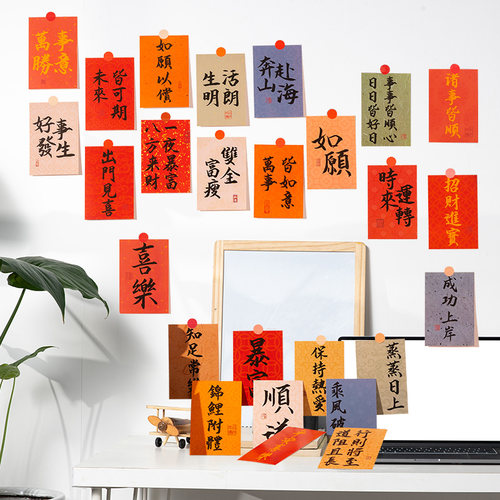 萬事
勝意
未來
皆可期
如願以償
生活
明朗
奔山
赴海
事事皆順心
日日皆好日
諸事皆順
好事
發生
出門見喜
一夜暴富
八方來財
富瘦
雙全
萬事
皆如意
如願
時來
運轉
招財進寶
喜樂
成功上岸
知足常
暴
保持熱愛
蒸蒸日上
錦鯉附體
順
乘風破
道阻且長
行則將至